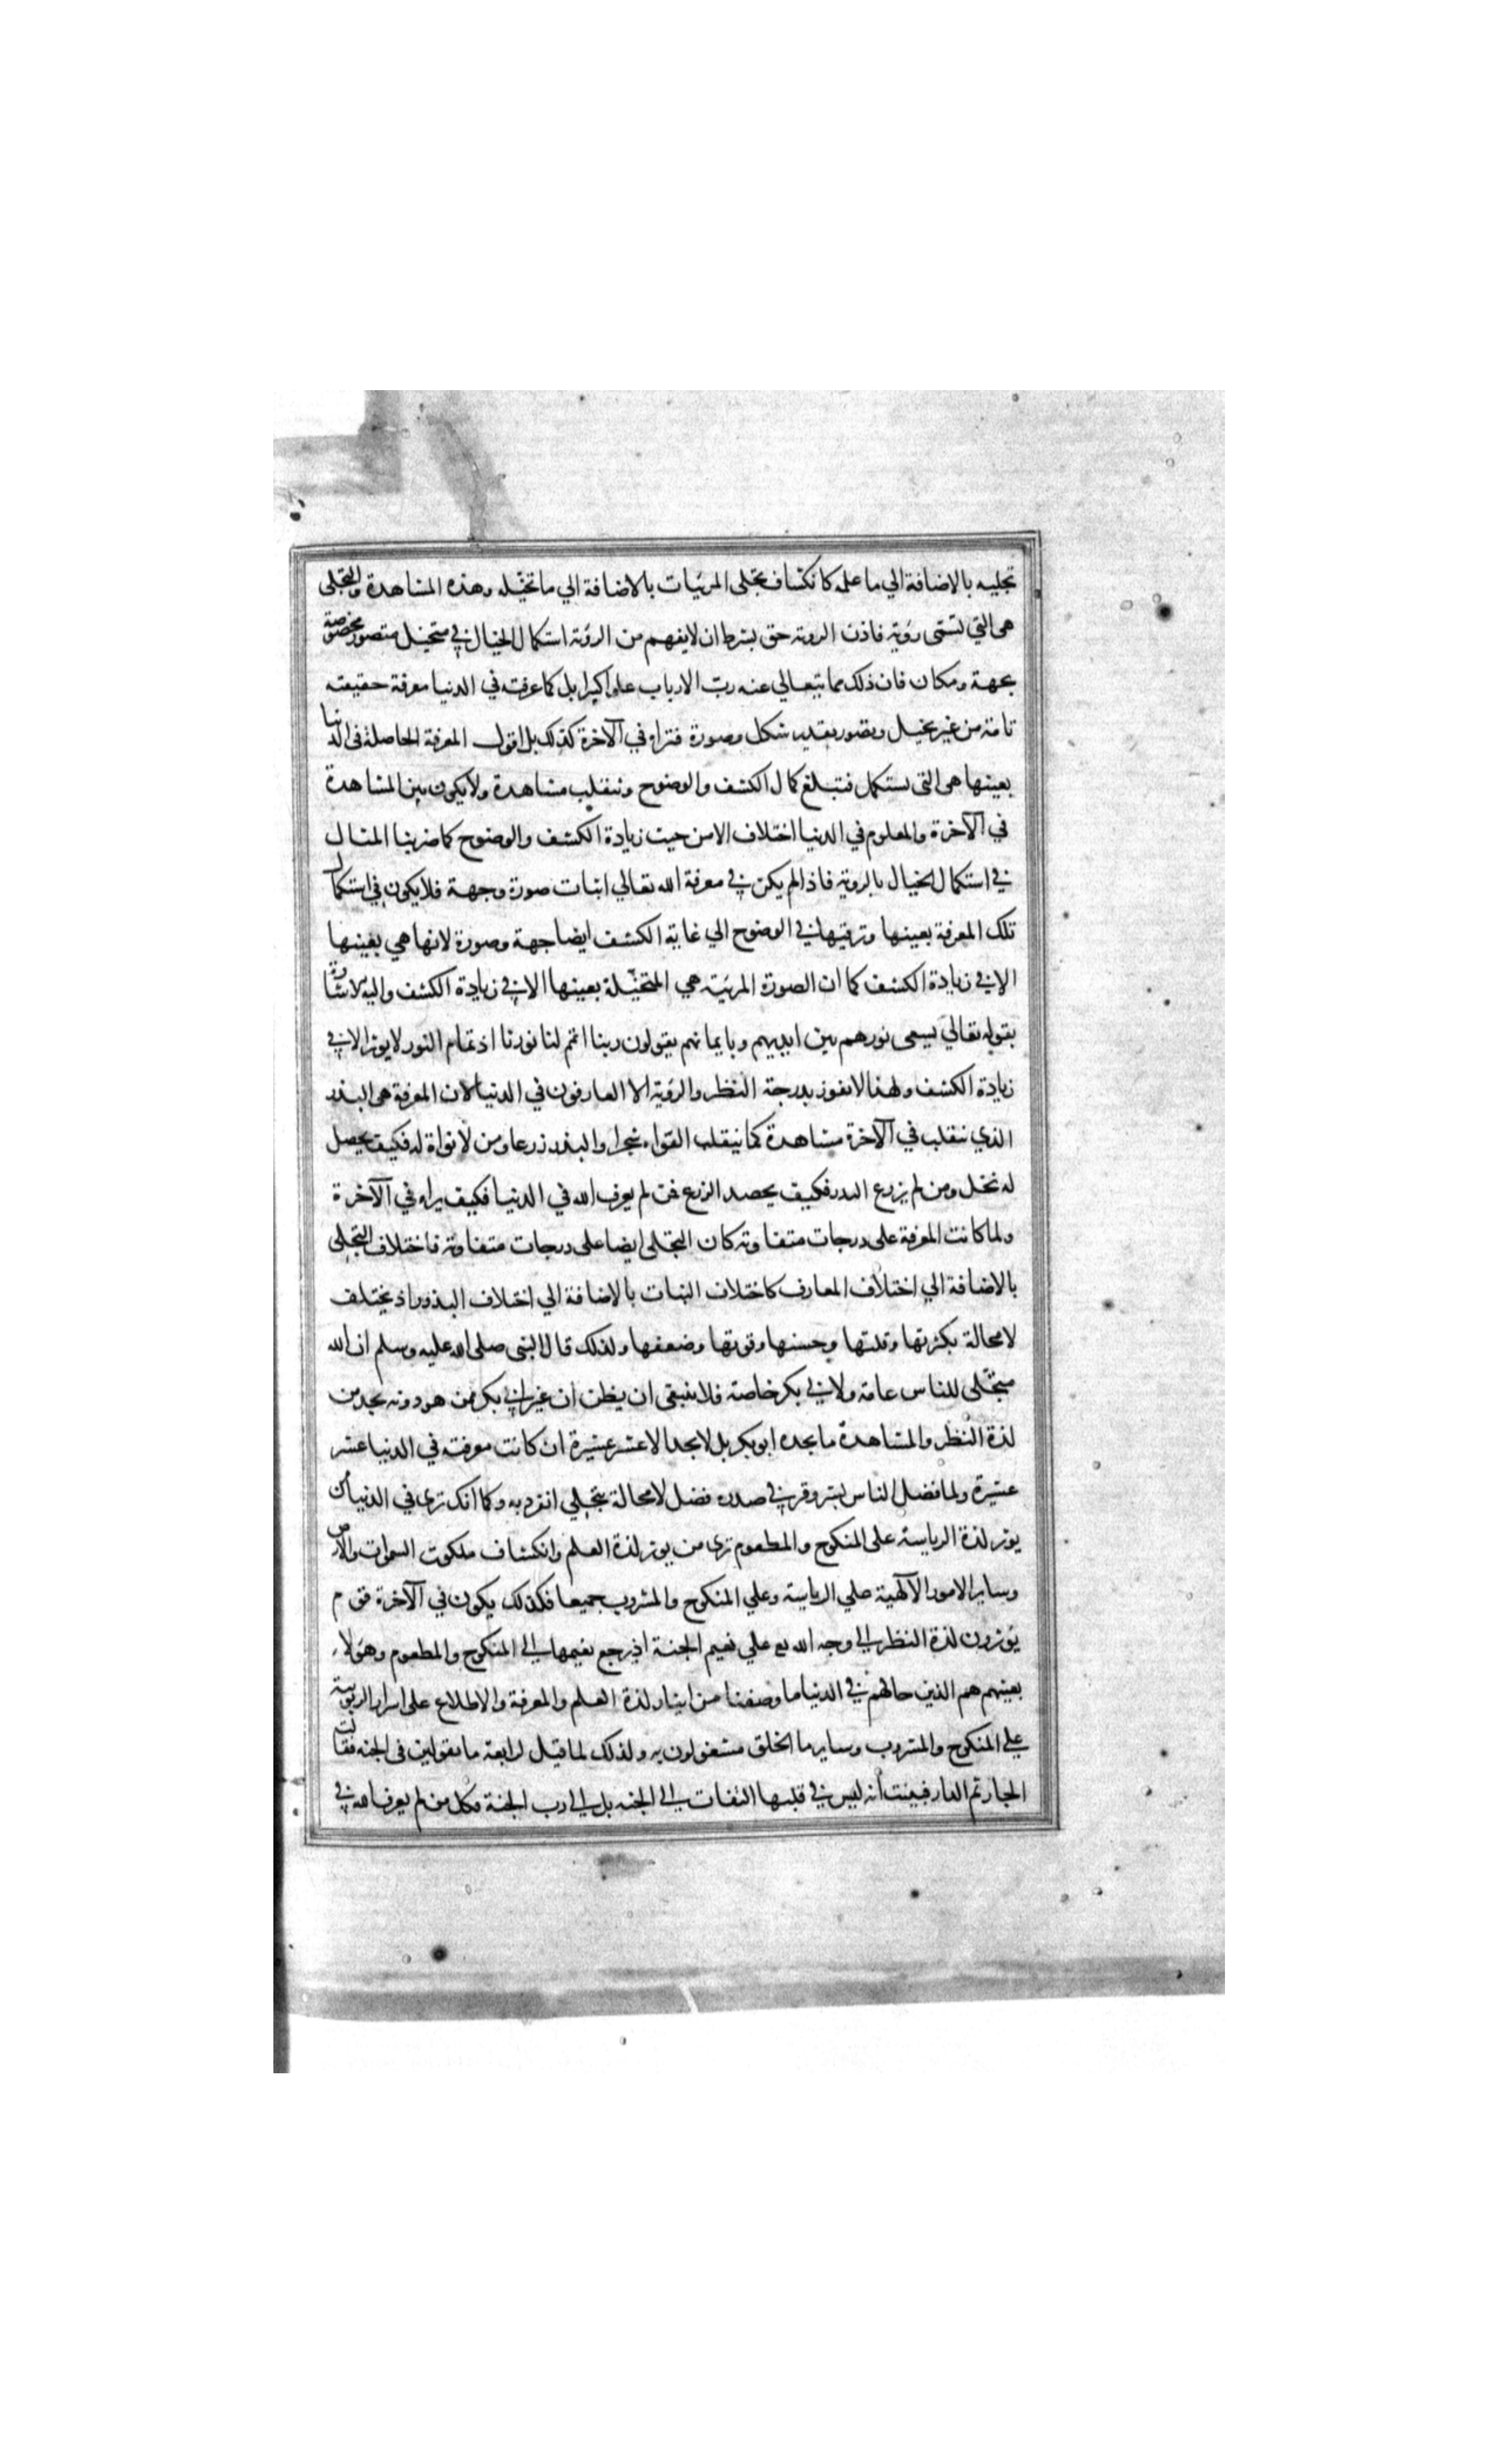 تجليه بالاضافة الي ما علمه كانكشاف تجلى المرئيات بالاضافة الي ما تخيّله وهذه المشاهدة والتجلى
هى التي تسمّى رؤية فاذن الروية حق بشرط ان لا يفهم من الرؤية استكمال الخيال في متخيل متصور مخصوصة
بجهة ومكان فان ذلك مما يتعالي عنه ربّ الارباب علوا كبيرا بل كما عرفته في الدنيا معرفة حقيقته
تامة من غير تخيل وتصور بقدير شكل وصورة فتراه في الآخرة كذلك بل اقول المعرفة الحاصلة فى الدنيا
بعينها هى التى يستكمل فتبلغ كمال الكشف والوضوح وتنقلب مشاهدة ولا يكون بين المشاهدة
في الآخرة والمعلوم في الدنيا اختلاف الا من حيث زيادة الكشف والوضوح كما ضربنا المثال
في استكمال الخيال بالروية فاذا لم يكن في معرفة الله تعالي اثبات صورة وجهة فلا يكون في استكمال
تلك المعرفة بعينها وترقيها في الوضوح الي غاية الكشف ايضا جهة وصورة لانها هي بعينها
الا في زيادة الكشف كما ان الصورة المرئية هي المتخيّلة بعينها الا في زيادة الكشف واليه الاشارة
بقوله تعالي يسعى نورهم بين ايديهم وبايمانهم يقولون ربنا اتمم لنا نورنا اذ تمام النور لا يوثر الا في
زيادة الكشف ولهذا لا يفوز بدرجة النظر والرؤية الا العارفون في الدنيا لان المعرفة هى البذر
الذي تنقلب في الآخرة مشاهدة كما ينقلب النواة شجرا والبذر زرعا ومن لا نواة له فكيف يحصل
له نخل ومن لم يزرع البذر فكيف يحصد الزرع فمن لم يعرف الله في الدنيا فكيف يراه في الآخرة
ولما كانت المعرفة على درجات متفاوتة كان التجلى ايضا على درجات متفاوتة فاختلاف التجلى
بالاضافة الي اختلاف المعارف كاختلاف النبات بالاضافة الي اختلاف البذور اذ يختلف
لا محالة بكثرتها وقلتها وحسنها وقوتها وضعفها ولذلك قال النبى صلى الله عليه وسلم ان الله
يتجلّى للناس عامة ولابي بكر خاصة فلا ينبغى ان يظن ان غير ابي بكر ممن هو دونه يجد من
لذة النظر والمشاهدة ما يجده ابو بكر بل لا يجد الا عشر عشيرة ان كانت معرفته في الدنيا عشر
عشيرة ولما فضل الناس بسر وقر في صدره فضل لا محالة بتجلي انفرد به وكما انك ترى في الدنيا من
يوثر لذة الرياسة على المنكوح والمطعوم ترى من يوثر لذة العلم وانكشاف ملكوت السموات والارض
وساير الامور الآلهية علي الرياسة وعلي المنكوح والمشروب جميعا فكذلك يكون في الآخرة قوم
يؤثرون لذة النظر الى وجه الله تع علي نعيم الجنة اذ يرجع نعيمها الى المنكوح والمطعوم وهؤلاء
بعينهم هم الذين حالهم في الدنيا ما وصفنا من ايثار لذة العلم والمعرفة والاطلاع على اسرار الربوبية
علي المنكوح والمشروب وساير ما الخلق مشغولون به ولذلك لما قيل لرابعة ما تقولين فى الجنه فقالت
الجار ثم الدار فبينت أنه ليس في قلبها التفات الى الجنه بل الى رب الجنة فكل من لم يعرف الله في